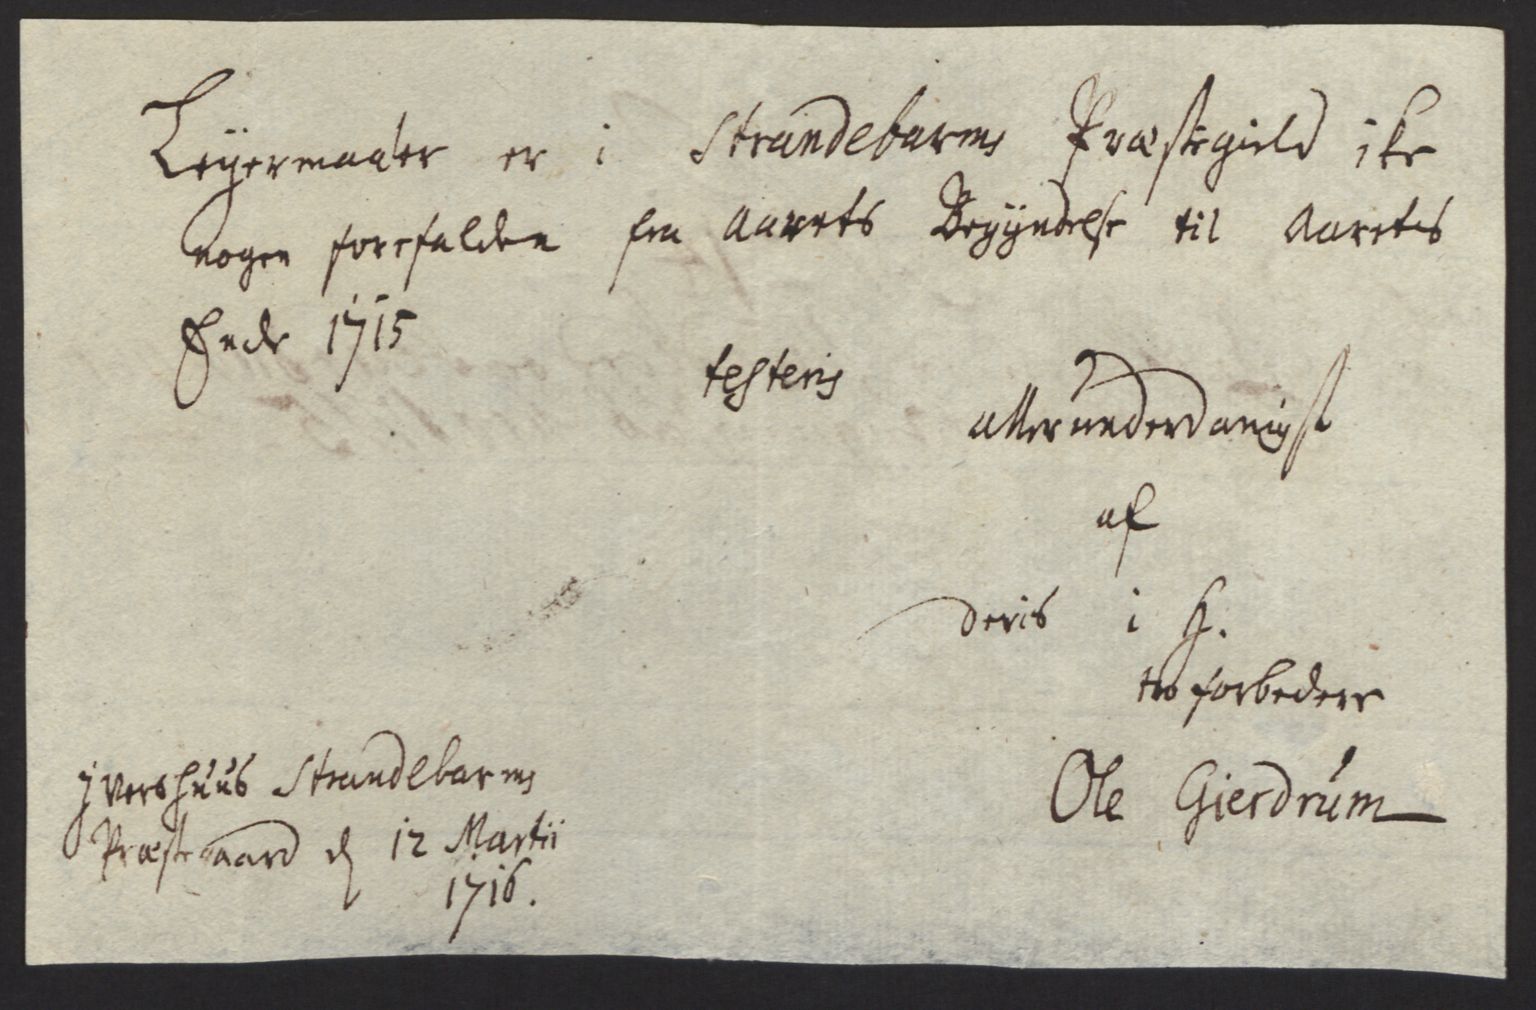 Leyermaaler er i Strandebarms Præstegield ike
nogen forefalden fra Aarets Begyndelse til Aaretis
Ende 1715
testeris
allerunderdanigst
af
deris i H.
tro forbedere
Ole Gierdrúm
Jvershuus Strandebarms
Præstegaard d 12 Martii
1716.